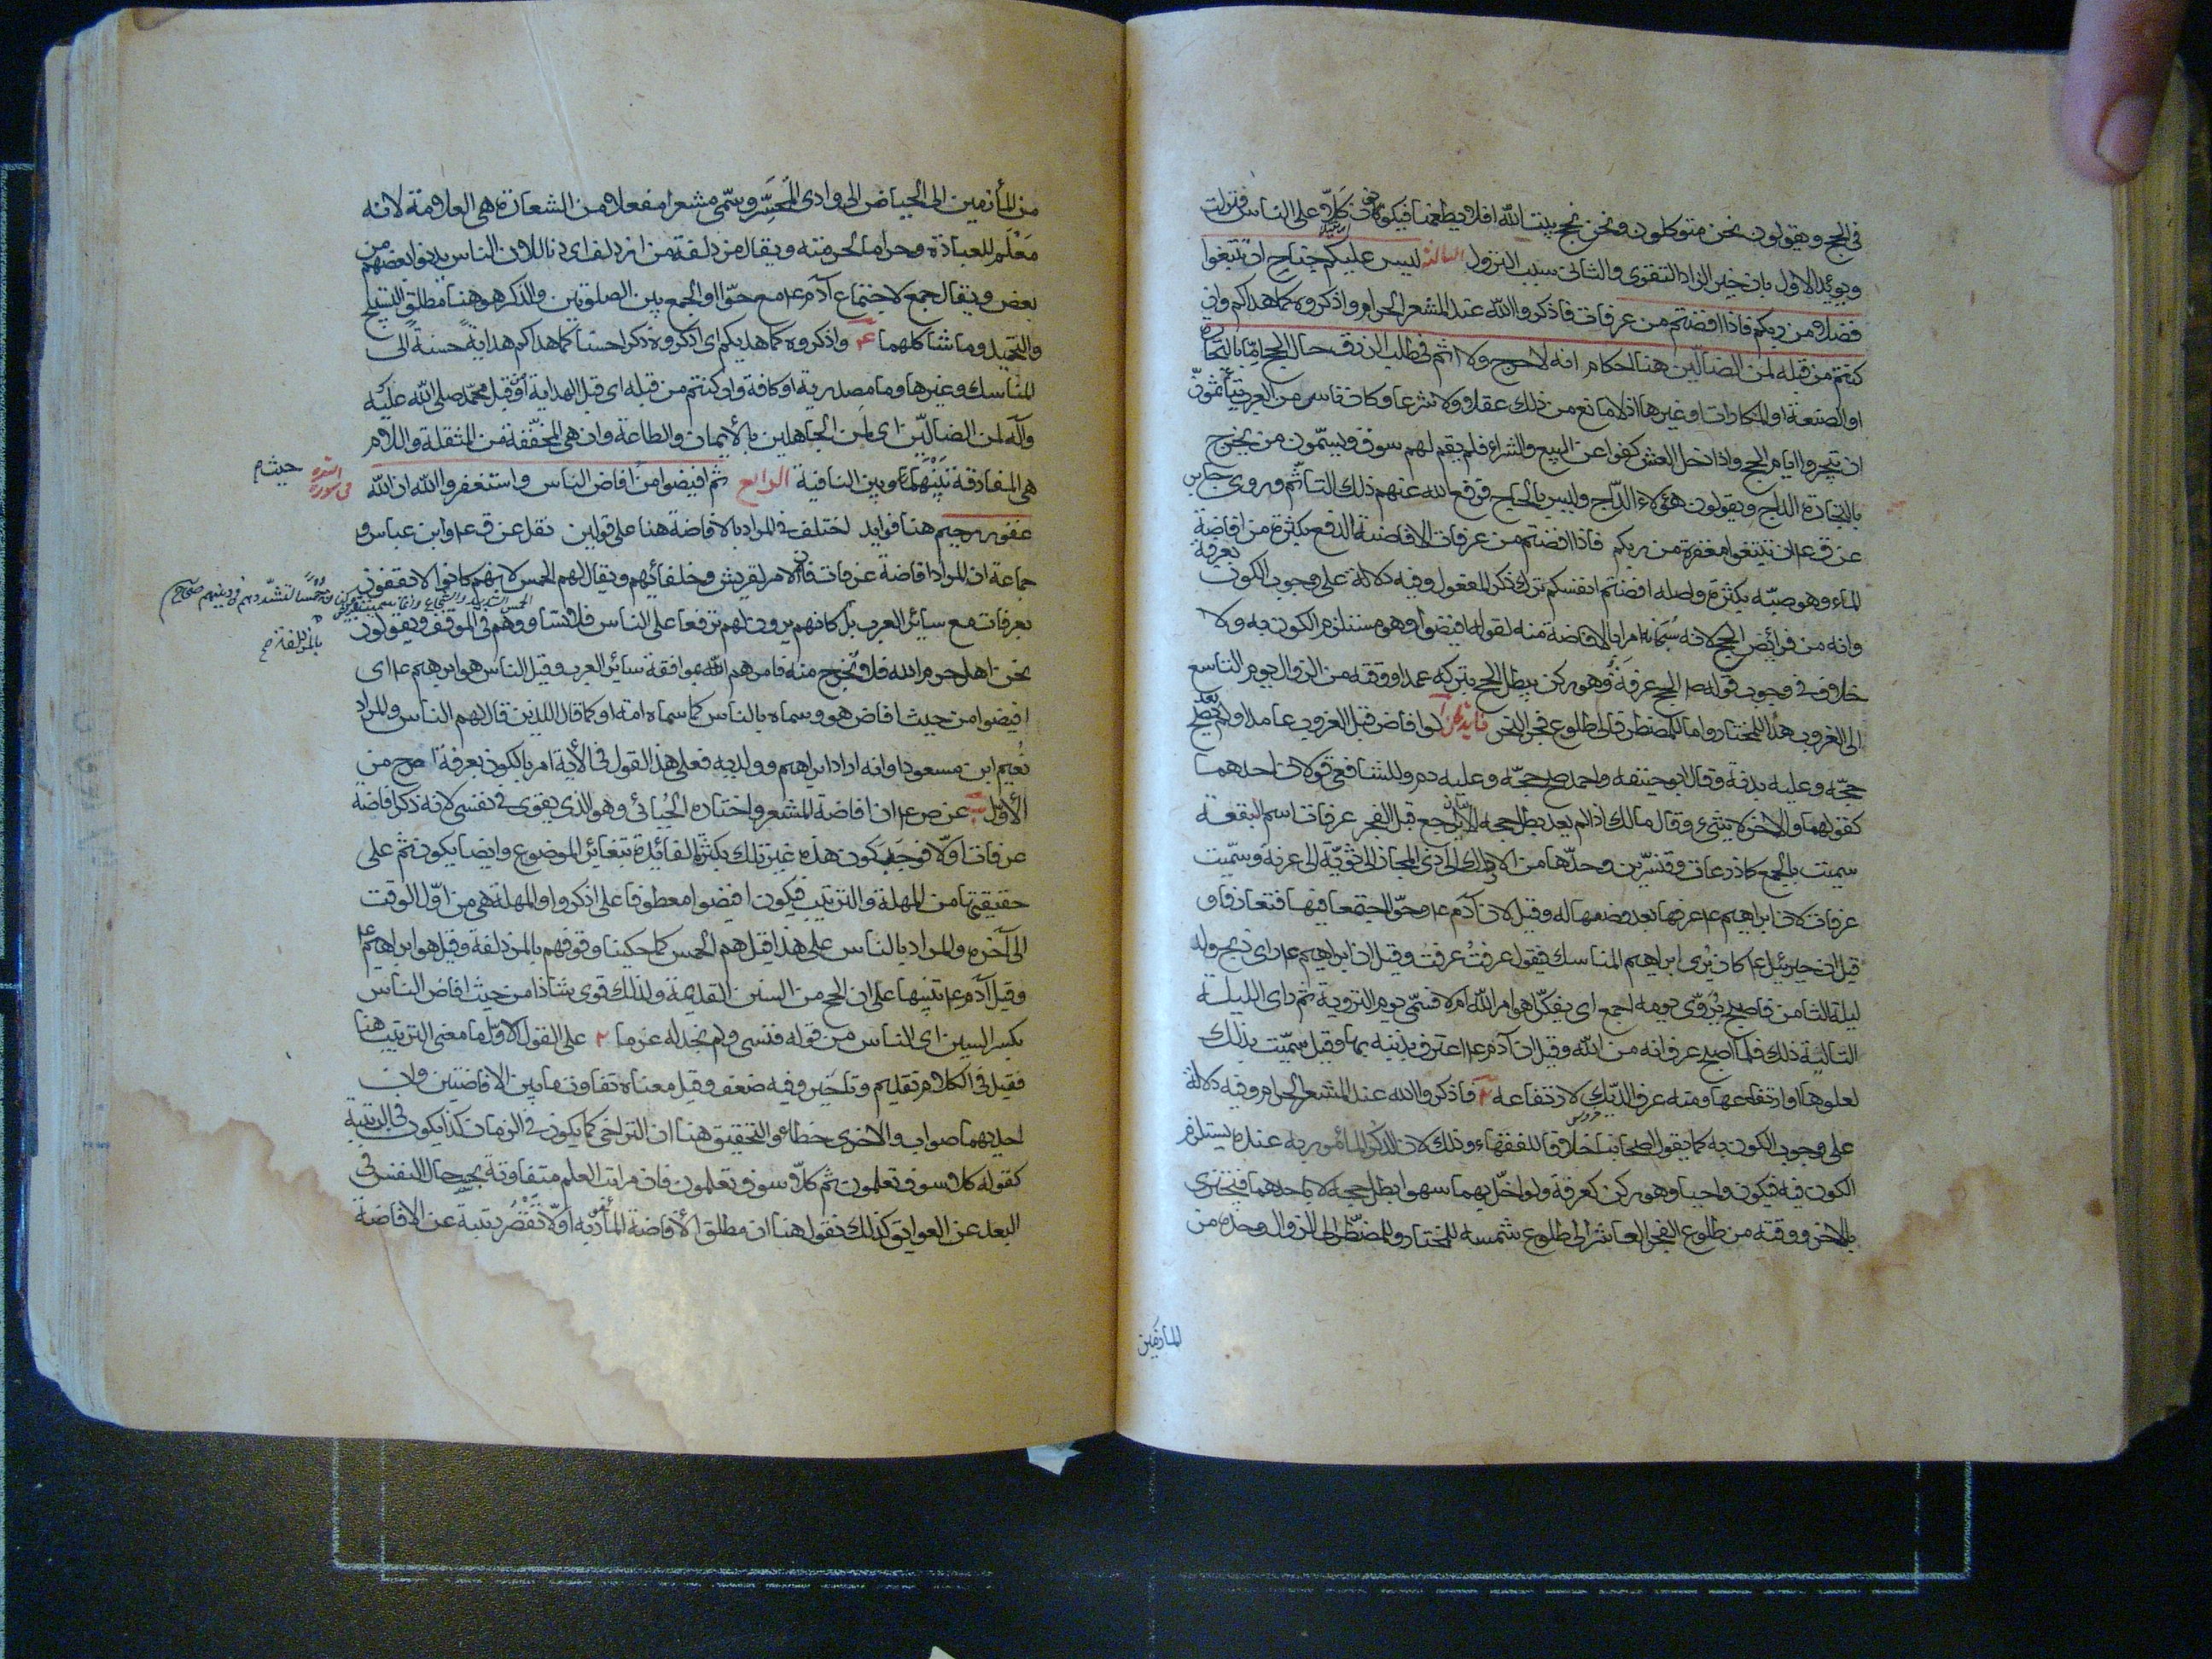 في الحج ويقولون نحن متوكلون ونحن نحج بيت الله افلا يطعمنا فيكونون كلّا على الناس فنزلت
ويؤيد الاول بان خير الزاد التقوى والثاني سبب النزول الثالثة ليس عليكم جناح ان تبتغوا
فضلا من ربكم فاذا افضتم من عرفات فاذكروا الله عند المشعر الحرام واذكروه كما هداكم وان
كنتم من قبله لمن الضالّين هنا احكام انه لا حرج ولا اثم في طلب الرزق حال الحج امّا بالتجارة
او الصنعة او المكارات او غيرها اذ لا مانع من ذلك عقلا ولا شرعا وكان ناس من العرب يتأثمون
ان يتجروا ايام الحج واذا دخل العشر كفوا عن البيع والشراء فلم يقم لهم سوق ويسمّون من يخرج
بالتجارة الداج ويقولون هؤلاء الدّاج وليس بالحاج فرفع الله عنهم ذلك التاثم وروى جابر
عن ق ع ان تبتغوا مغفرة من ربكم فاذا افضتم من عرفات الافاضة الدفع بكثرة من افاضة
الماء وهو صبّه بكثرة واصله افضتم انفسكم ترك ذكر المفعول وفيه دلالة على وجوب الكون بعرفة
وانه من فرايض الحج لانه سبحانه امر بالافاضة منه لقوله افيضوا وهو مستلزم الكون به ولا
خلاف في وجوب قوله ص الحج عرفة وهو ركن يبطل الحج بتركه عمدا ووقته من الزوال يوم التاسع
الى الغروب هذا للمختار واما للمضطر فالى طلوع فجر النحر لوا فاض قبل الغروب عامدا ولم يعد صح
حجّه وعليه بدنة وقال ابو حنيفه واحمد صح حجّه وعليه دم وللشافعي قولان احدهما
كقولهما والاخر لا شيء وقال مالك اذا لم يعد بطل حجه الا ان يرجع قبل الفجر عرفات اسم لبقعة
سميت بالجمع كاذرعات وقنسّرين وحدّها من الاراك الى ذي المجاز الى ثويّة الى عرنة وسمّيت
عرفات لان ابراهيم ع عرفها بعد وصفها له وقيل لان آدم ع وحوّا اجتمعا فيها فتعارفا و
قيل ان جبرئيل ع كان يرى ابراهيم المناسك فيقول عرفت عرفت وقيل ان ابراهيم ع راى ذبح ولده
ليلة الثامن فاصبح يُروّي يومه اجمع اي يفكّر اهو امر الله ام لا فسمّي يوم التروية ثم راى الليلة
التالية ذلك فلمّا اصبح عرف انه من الله وقيل ان آدم ع اعترف بذنبه بها وقيل سمّيت بذلك
لعلوها وارتفاعها ومنه عرف الديك لارتفاعه ٢ فاذكروا الله عند المشعر الحرام وفيه دلالة
على وجوب الكون به كما يقول اصحابنا خلافا للفقهاء وذلك لان الذكر المأمور به عنده يستلزم
الكون فيه فيكون واجبا وهو ركن كعرفة ولو اخلّ بهما سهوا بطل حجه لا باحدهما فيجتزى
بالاخر ووقته من طلوع الفجر العاشر الى طلوع شمسه للمختار وللمضطر الى الزوال وحدّه من
المأزمين
من المأزمين الى الحياض الى وادى المحسّر وسمّى مشعرا مفعلا من الشعارة هي العلامة لانه
مَعْلَم للعبادة وحراما لحرمته ويقال مزدلفة من ازدلف اي دنا لان الناس يدنوا بعضهم من
بعض ويقال جمع لاجتماع آدم ع مع حوّا او الجمع بين الصلوتين والذكر هو هنا مطلق التسبيح
والتحميد وما شاكلهما واذكروه كما هديكم اى اذكروه ذكرا حسنا كما هداكم هداية حسنة الى
المناسك وغيرها وما مصدرية او كافة وان كنتم من قبله اى قبل الهداية او قبل محمد صلى الله عليه
وآله لمن الضالّين اى لمن الجاهلين بالأيمان والطاعة وان هى المخففة من المثقلة واللام
هي الفارقة بَيْنَهَما وبين النافية الرابع ثم افيضوا من افاض الناس واستغفروا الله ان الله
حيث
غفور رحيم هنا فوايد اختلف في المراد بالافاضة هنا على قولين نقل عن ق ع وابن عباس و
جماعة ان المراد افاضة عرفات فان الامر لقريش وحلفائهم ويقال لهم الحمس لانهم كانوا لا يقفون
بعرفات مع سائر العرب بل كانهم يرون لهم ترفعا على الناس فلا يتساووهم في الموقف ويقولون
بالمزدلفة صح
نحن اهل حرم الله فلا نخرج منه فامرهم الله بموافقة سائر العرب وقيل الناس هو ابرهيم ع اى
افيضوا من حيث افاض هو وسماه بالناس كما سماه امة او كما قال الذين قال لهم الناس والمراد
نُعيم ابن مسعود او انه اراد ابراهيم وولديه فعلى هذا القول في الأية امر بالكون بعرفة
الأوّل عن ص ع ان افاضة المشعر واختاره الجُبّائى وهو الذى يقوى في نفسى لانه ذكر افاضة
عرفات اوّلا فوجب كون هذه غير تلك بكثرة الفائدة بتغائر الموضوع وايضا يكون ثم على
حقيقتها من المهلة والترتيب فيكون افيضوا معطوفا على اذكروا والمهلة هى من اوّل الوقت
الى آخره والمراد بالناس على هذا قيل هم الحمس كما حكينا وقوفهم بالمزدلفة وقيل هو ابراهيم ع
وقيل آدم ع تنبيها على ان الحج من السنن القديمة ولذلك قرى شاذا من حيث افاض الناس
بكسر السين اى الناس من قوله فنسى ولم نجد له عزما ٢ على القول الاوّل ما معنى الترتيب هنا
فقيل في الكلام تقديم وتاخير وفيه ضعف وقيل معناه تفاوت ما بين الافاضتين وان
احديهما صواب والاخرى خطا والتحقيق هنا ان التراخى كما يكون في الزمان كذا يكون في الرتبة
كقوله كلا سوف تعلمون ثم كلّا سوف تعلمون فان مراتب العلم متفاوتة بحسب حال النفس في
البعد عن العوايق كذلك نقول هنا ان مطلق الأفاضة المأمور به اوّلا تَقْصُر رتبة عن الافاضة